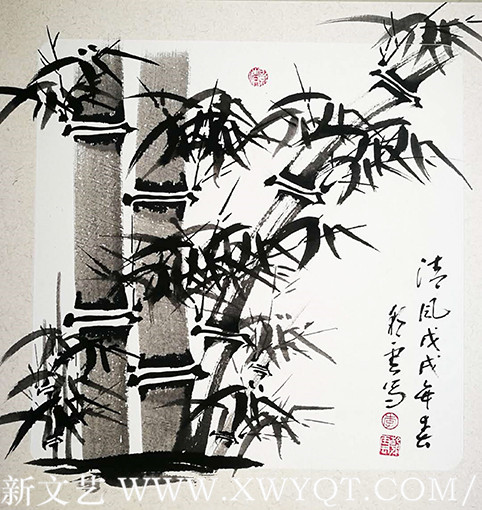 清风戊戌年春
雲写
新文艺 WWW.XWYQT.COM/